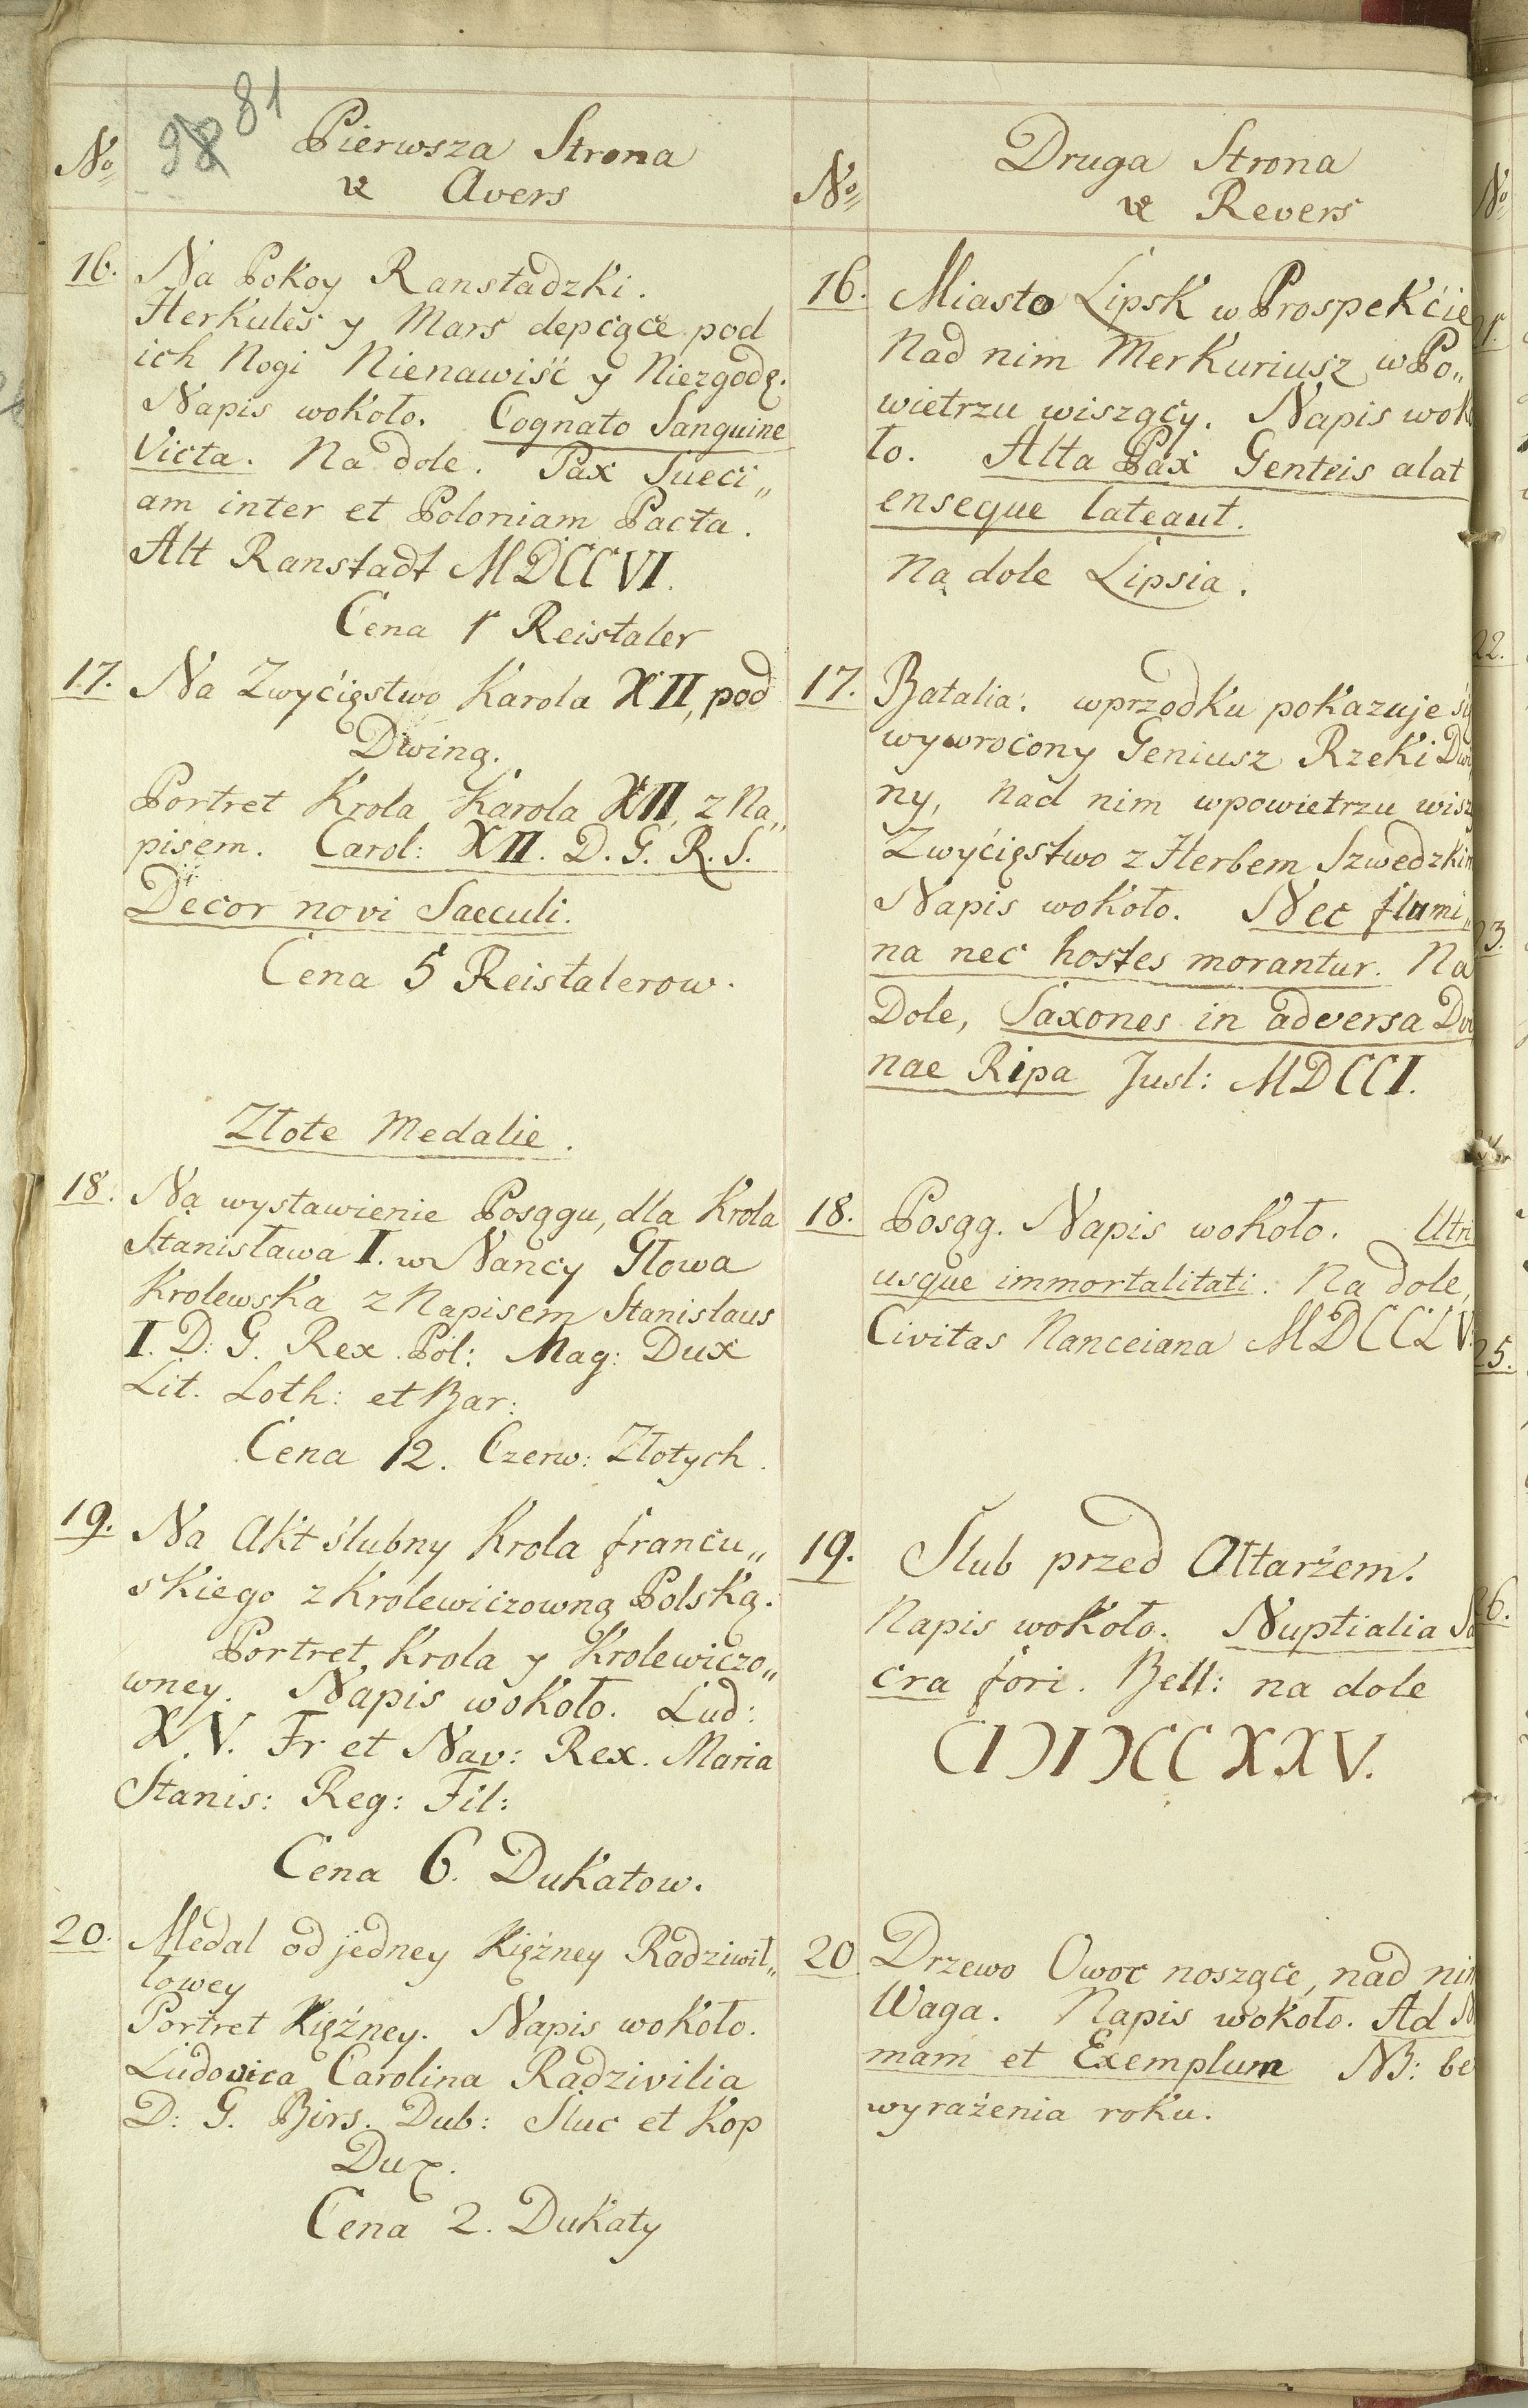 98 81
No
Pierwsza Strona
Avers
16. Na Pokoy Ranstadzki.
Herkules y Mars depcące pod
ich Nogi Nienawiść y Niezgodę.
Napis wokoło. Cognato Sanguine
Victa. Na dole. Pax Sueci„
am inter et Poloniam Pacta.
Alt Ranstadt MDCCVI.
Cena 1 Reistaler
17. Na Zwycięstwo Karola XII, pod
Dwiną.
Portret Krola Karola XII, z Na„
pisem. Carol: XII. D. G. R. S.
Decor novi Saeculi.
Cena 5 Reistalerow.
Złote Medalie.
18. Na wystawienie Posągu, dla Krola
Stanisława I. w Nancy Głowa
Krolewska z Napisem Stanislaus
I. D: G. Rex Pol: Mag: Dux
Lit. Loth: et Bar:
Cena 12. Czerw: Złotych.
19. Na Akt ślubny Krola francu„
skiego z Krolewiczowną Polską.
Portret Krola y Krolewiczo„
wney. Napis wokoło. Lud:
XV. Fr et Nav: Rex. Maria
Stanis: Reg: Fil:
Cena 6. Dukatow.
20. Medal od jedney Xiężney Radziwił„
łowey
Portret Xiężney. Napis wokoło.
Ludovica Carolina Radzivilia
D: G. Birs. Dub: Sluc et Kop
Dux.
Cena 2. Dukaty
No
Druga Strona
Revers
16. Miasto Lipsk w Prospekcie
Nad nim Merkuriusz w Po„
wietrzu wiszący. Napis wok
ło. Alta Pax Genteis alat
enseque lateaut.
Na dole Lipsia.
17. Batalia: wprzodku pokazuje
wywrocony Geniusz Rzeki Dwi
ny, Nad nim wpowietrzu wisz
Zwycięstwo z Herbem Szwedzkim
Napis wokoło. Nec flumi„
na nec hostes morantur. Na
Dole, Saxones in adversa
nae Ripa Jusl: MDCCI.
18. Posąg. Napis wokoło. Utri
usque immortalitati. Na dole,
Civitas Nanceiana MDCCLV.
19. Slub przed Ołtarzem.
Napis wokoło. Nuptialia Sa
cra fori. Bell: na dole
CIƆIƆCCXXV.
20 Drzewo Owoc noszące, nad nim
Waga. Napis wokoło. Ad
mam et Exemplum NB: be
wyrażenia roku.
No
22.
25.